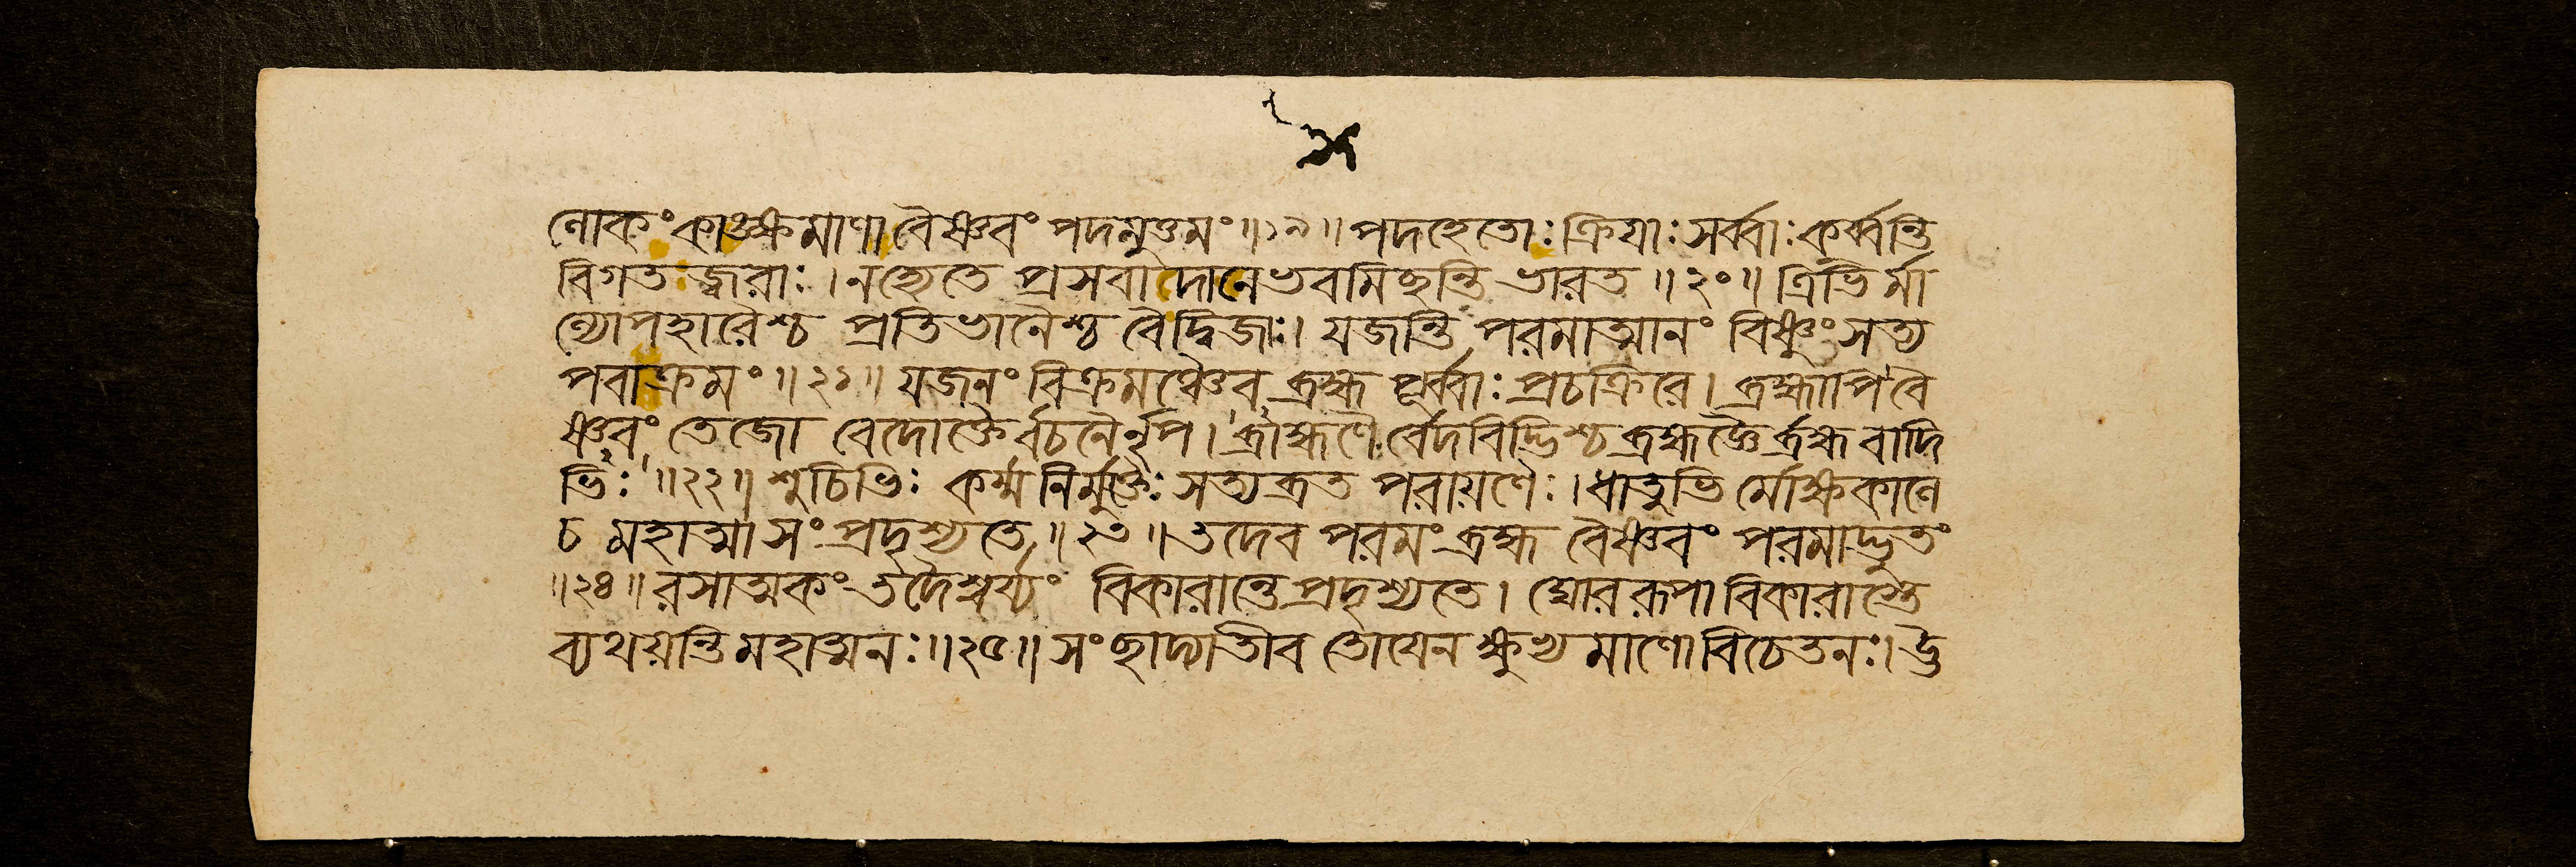 লোকং কাঙ্ক্ষমাণা বৈষ্ণবং পদমুত্তমং॥১৯॥ পদহেতোঃ ক্রিয়াঃ সর্ব্বাঃ কুর্ব্বন্তি
বিগতজ্বরাঃ। নহ্যেতে প্রসবাদানে ভবমিছন্তি ভারত॥২০॥ ত্রিভির্মা
ল্যোপহারৈশ্চ প্রতিভানৈশ্চ বৈদ্বিজাঃ। যজন্তি পরমাত্মানং বিষ্ণুং সত্য
পরাক্রমং॥২১॥ যজনং বিক্রমঞ্চৈব ব্রহ্ম পূর্ব্বাঃ প্রচক্রিরে। ব্রহ্মাপি বৈ
ষ্ণবং তেজো বেদোক্তৈর্বচনৈর্নৃপ। ব্রাহ্মণৈ র্বেদবিদ্ভিশ্চ ব্রহ্মজ্ঞৈ র্ব্রহ্মবাদি
ভিঃ॥২২॥ শুচিভিঃ কর্ম্মনির্মুক্তৈঃ সত্যব্রত পরায়ণৈঃ। ধাতুভি র্মোক্ষকালে
চ মহাত্মা সংপ্রদৃশ্যতে॥২৩॥ তদেব পরমং ব্রহ্ম বৈষ্ণবং পরমাদ্ভুতং
॥২৪॥ রসাত্মকং তদৈশ্বর্য্যং বিকারান্তে প্রদৃশ্যতে। ঘোররূপা বিকারাস্তে
ব্যথয়ন্তি মহাত্মনঃ॥২৫॥ সংছাদ্যাতীব তোয়েন ক্ষুভ্যমাণো বিচেতনঃ।